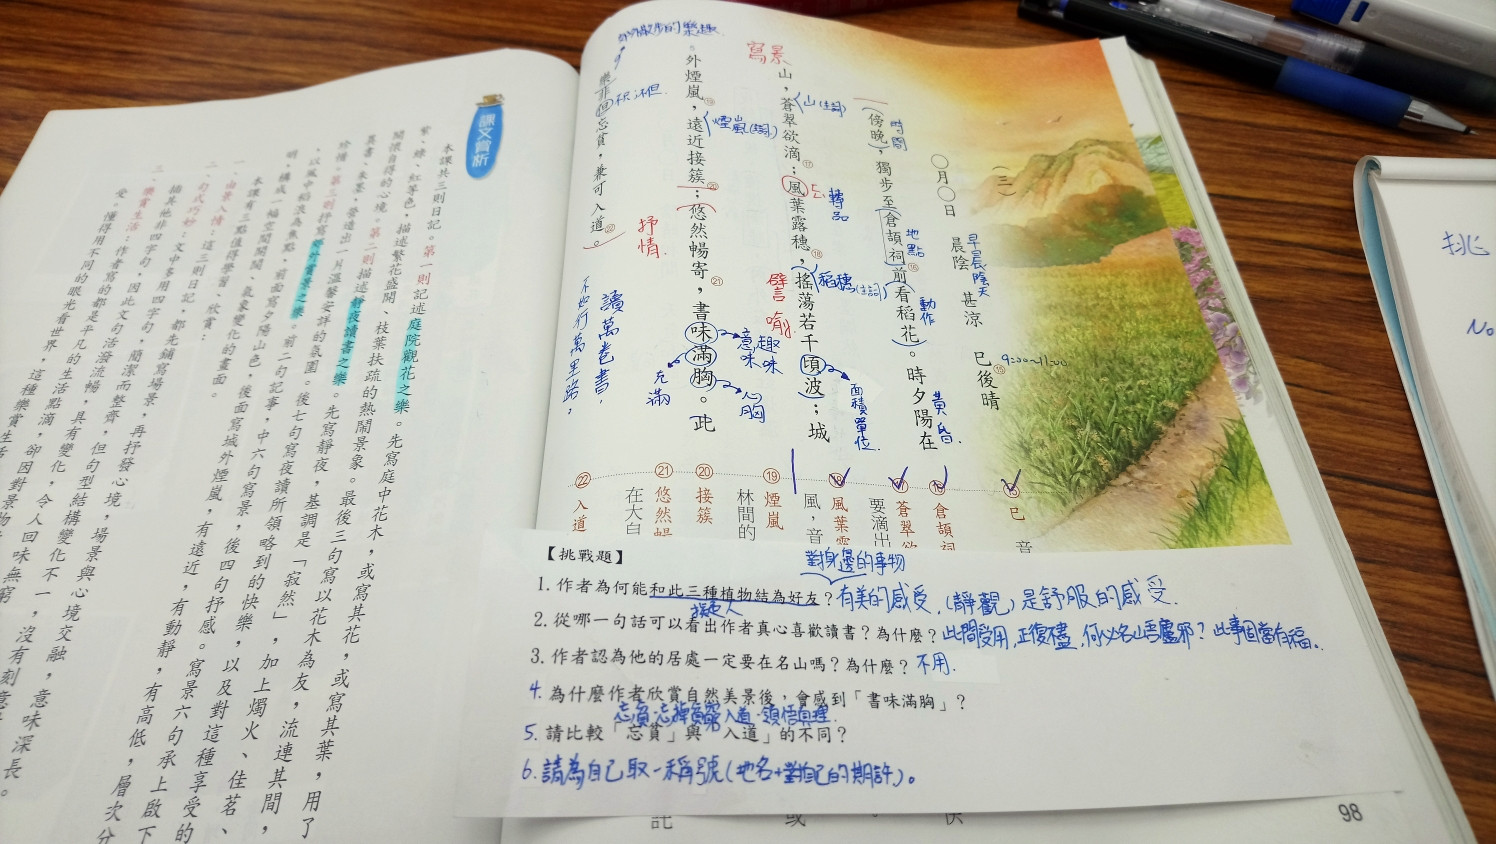 (三)
○月○日 晨陰 甚涼 巳後晴
早晨陰天
9:00~11:00
傍晚,獨步至倉頡祠前看稻花。時夕陽在
時間
地點
動作
黃昏
山,蒼翠欲滴;風葉露穗,搖蕩若千頃波;城
寫景
山(主詞)
轉品
稻穗(主詞)
譬喻
面積單位
外煙嵐,遠近接簇;悠然暢寄,書味滿胸。此
煙嵐(主詞)
意味
趣味
充滿
心胸
樂非但忘貧,兼可入道。
散步的樂趣
不但
抒情
讀萬卷書,
不如行萬里路,
⑮巳
⑯倉頡祠
⑰蒼翠欲
要滴出
⑱風葉露
風,音
⑲煙嵐
林間的
⑳接簇
㉑悠然暢
在大自
㉒入道
【挑戰題】
對身邊的事物
1. 作者為何能和此三種植物結為好友?有美的感受,(靜觀)是舒服的感受.
擬人
2. 從哪一句話可以看出作者真心喜歡讀書?為什麼?此間受用,正復不盡,何必名山吾廬邪?此事固當有福.
3. 作者認為他的居處一定要在名山嗎?為什麼?不用.
4. 為什麼作者欣賞自然美景後,會感到「書味滿胸」?
忘貧:忘掉貧窮 入道:領悟真理.
5. 請比較「忘貧」與「入道」的不同?
6. 請為自己取一稱號(地名+對自己的期許)。
98
課文賞析
本課共三則日記。第一則記述庭院觀花之樂。先寫庭中花木,或寫其花,或寫其葉,用了
紫、綠、紅等色,描述繁花盛開、枝葉扶疏的熱鬧景象。最後三句寫以花木為友,流連其間,
閒懷自得的心境。第二則描述靜夜讀書之樂。先寫靜夜,基調是「寂然」,加上燭火、佳茗、
異書、朱墨,營造出一片溫馨安詳的氛圍。後七句寫夜讀所領略到的快樂,以及對這種享受的
珍惜。第三則抒寫郊外賞景之樂。前二句記事,中六句寫景,後四句抒感。寫景六句承上啟下
,以風中稻浪為焦點,前面寫夕陽山色,後面寫城外煙嵐,有遠近,有動靜,有高低,層次分
明,構成一幅空間開闊、氣象變化的畫面。
本課有三點值得學習、欣賞:
一、由景入情:這三則日記,都先鋪寫場景,再抒發心境,場景與心境交融,意味深長。
二、句式巧妙:文中多用四字句,簡潔而整齊,但句型結構變化不一,沒有刻意
描其他非四字句,因此文句活潑流暢,具有變化,令人回味無窮
三、樂賞生活:作者寫的都是平凡的生活點滴,卻因對景物
受。懂得用不同的眼光看世界,這種樂賞生活
挑
No